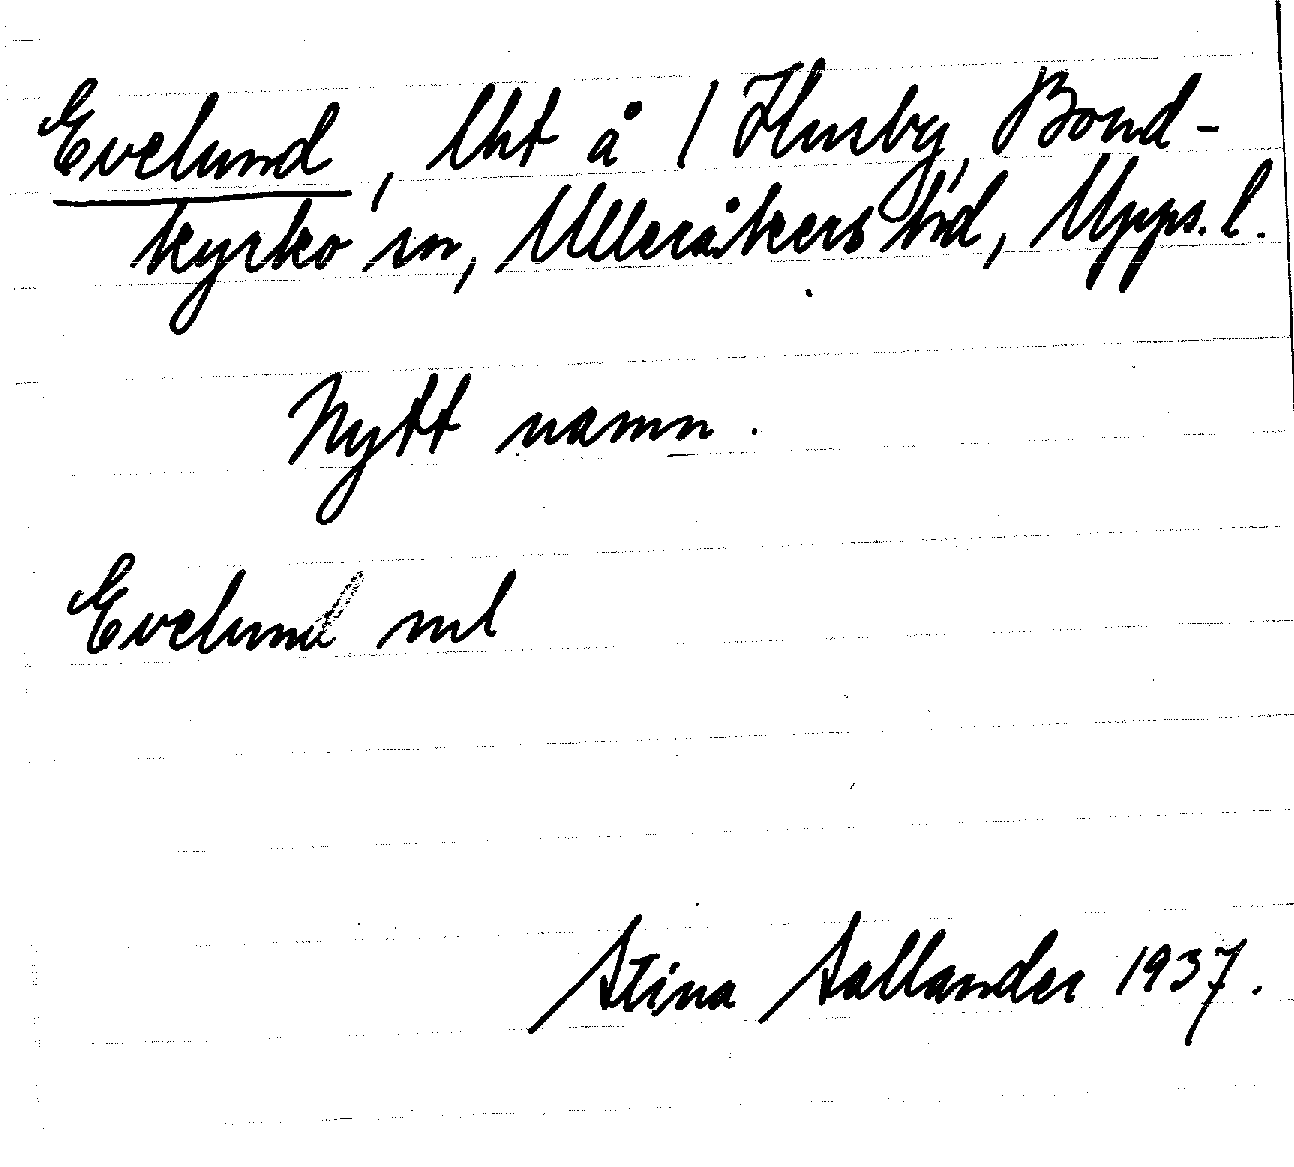 Evelund, lht å 1 Husby, Bond-
kyrko sn, Ulleråkers hd, Upps. l.
Nytt namn.
Evelund
Stina Sallander 1937.